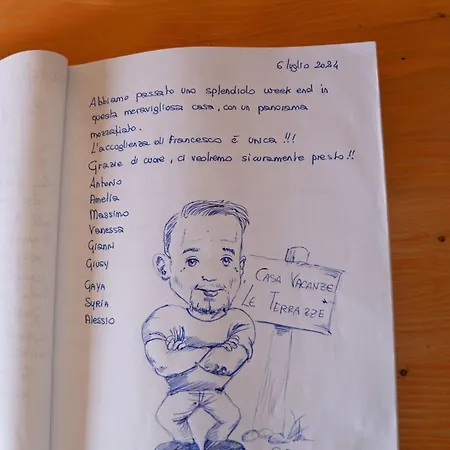 6 luglio 2024
Abbiamo passato uno splendido week end in
questa meravigliosa casa, con un panorama
mozzafiato.
L'accoglienza di Francesco È UNICA !!!
Grazie di cuore, ci vedremo sicuramente presto!!
Antonio
Amelia
Massimo
Vanessa
Gianni
Giusy
Gaya
Syria
Alessio
CASA VACANZE
LE TERRAZZE